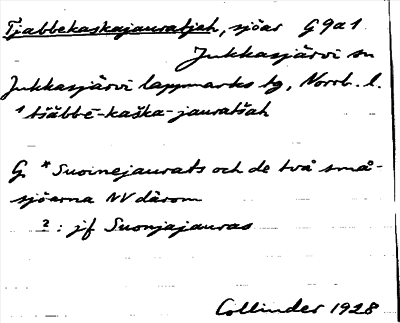 Tjabbekaskajauratjah, sjöar G9a1
Jukkasjärvi sn
Jukkasjärvi lappmarks tg, Norrb. l.
¹ tšäbbē-kaška-jauratšah
G. * Suoinejaurats och de två små-
sjöarna NV därom
² : jf Suonjajauras
Collinder 1928